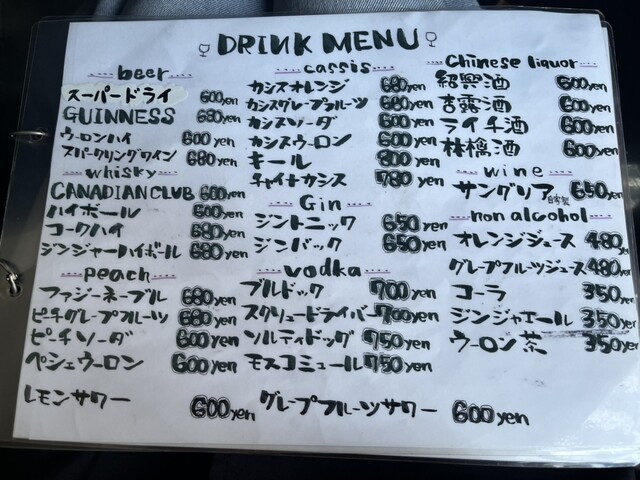 DRINK MENU
beer
スーパードライ 600yen
GUINNESS 680yen
ウーロンハイ 600yen
スパークリングワイン 680yen
whisky
CANADIAN CLUB 600yen
ハイボール 600yen
コークハイ 680yen
ジンジャーハイボール 680yen
peach
ファジーネーブル 680yen
ピーチグレープフルーツ 680yen
ピーチソーダ 600yen
ペシェウーロン 600yen
レモンサワー 600yen
cassis
カシスオレンジ 680yen
カシスグレープフルーツ 680yen
カシスソーダ 600yen
カシスウーロン 600yen
キール 800yen
チャイナカシス 780yen
Gin
ジントニック 650yen
ジンバック 650yen
vodka
ブルドック 700yen
スクリュードライバー 700yen
ソルティドッグ 750yen
モスコミュール 750yen
グレープフルーツサワー 600yen
Chinese liquor
紹興酒 600yen
杏露酒 600yen
ライチ酒 600yen
林檎酒 600yen
wine
サングリア 自家製 650yen
non alcohol
オレンジジュース 480yen
グレープフルーツジュース 480yen
コーラ 350yen
ジンジャエール 350yen
ウーロン茶 350yen